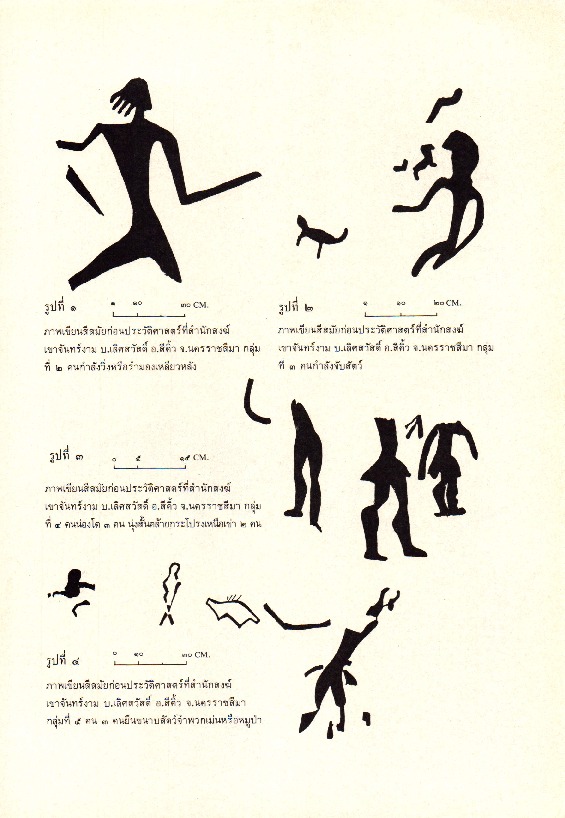 รูปที่ ๑
๑ ๑๐ ๓๐ CM.
ภาพเขียนสีสมัยก่อนประวัติศาสตร์ที่สำนักสงฆ์
เขาจันทร์งาม บ.เลิศสวัสดิ์ อ.สีคิ้ว จ.นครราชสีมา กลุ่ม
ที่ ๒ คนกำลังวิ่งหรือรำมองเหลียวหลัง
รูปที่ ๒
๑ ๑๐ ๒๐ CM.
ภาพเขียนสีสมัยก่อนประวัติศาสตร์ที่สำนักสงฆ์
เขาจันทร์งาม บ.เลิศสวัสดิ์ อ.สีคิ้ว จ.นครราชสีมา กลุ่ม
ที่ ๓ คนกำลังจับสัตว์
รูปที่ ๓
๐ ๕ ๑๕ CM.
ภาพเขียนสีสมัยก่อนประวัติศาสตร์ที่สำนักสงฆ์
เขาจันทร์งาม บ.เลิศสวัสดิ์ อ.สีคิ้ว จ.นครราชสีมา กลุ่ม
ที่ ๔ คนน่องโต ๓ คน นุ่งสั้นคล้ายกระโปรงเหนือเข่า ๒ คน
รูปที่ ๔
๐ ๑๐ ๓๐ CM.
ภาพเขียนสีสมัยก่อนประวัติศาสตร์ที่สำนักสงฆ์
เขาจันทร์งาม บ.เลิศสวัสดิ์ อ.สีคิ้ว จ.นครราชสีมา
กลุ่มที่ ๕ คน ๓ คนยืนขนาบสัตว์จำพวกเม่นหรือหมูป่า